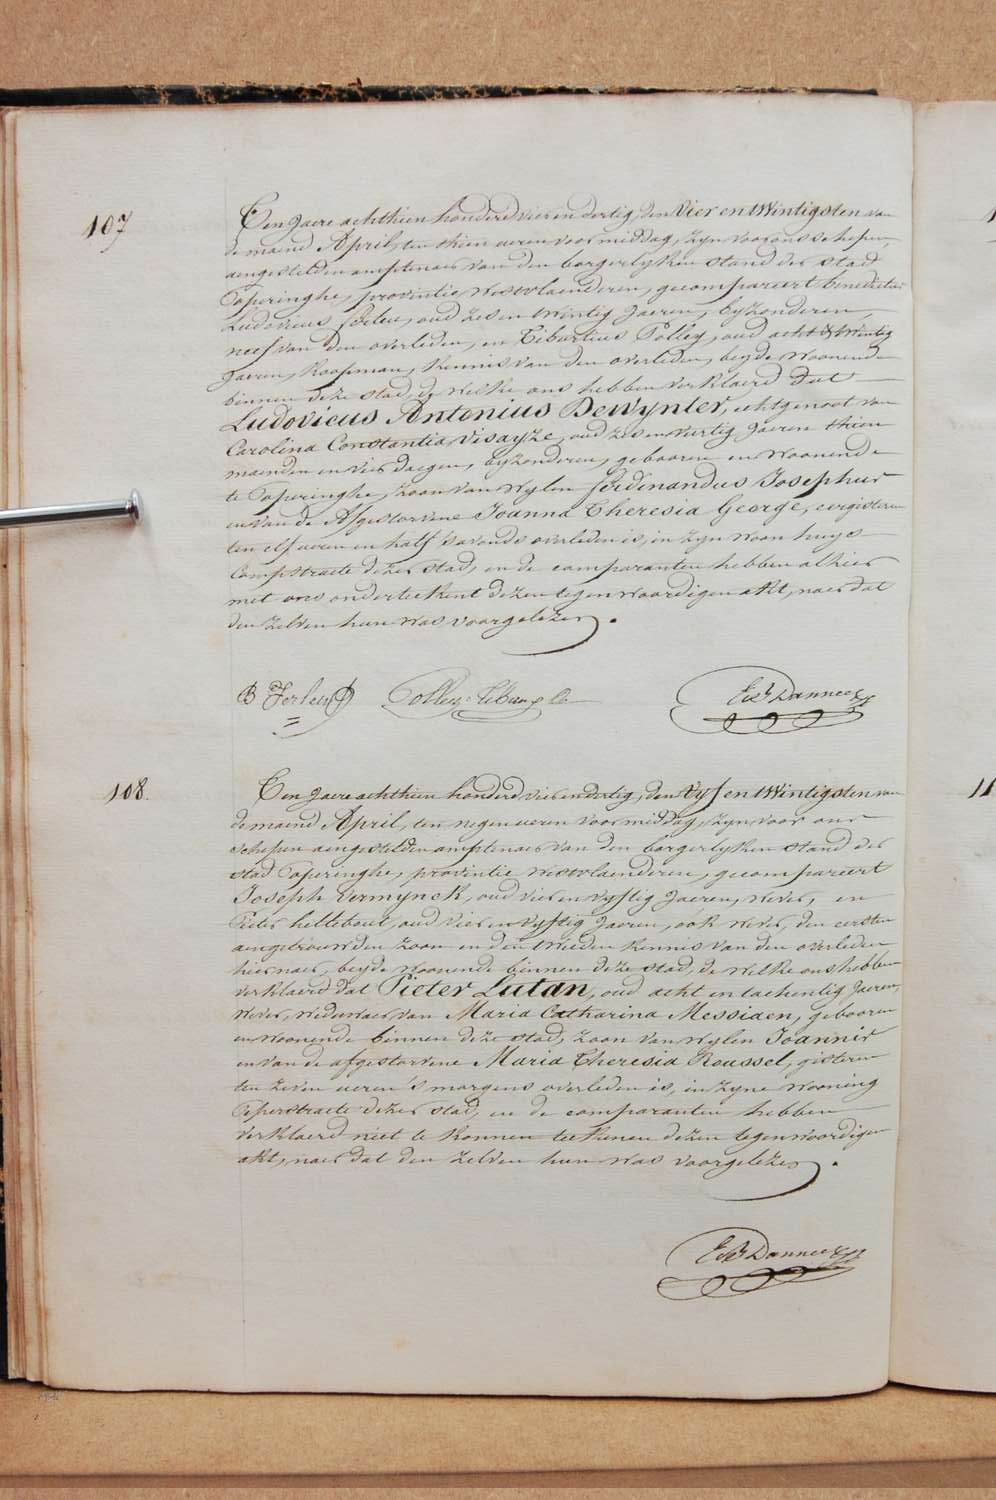 107
Ten Jaere achthien honderd vier en dertig, den Vier en twintigsten van
de maend April, ten thien ueren voormiddag, zyn voor ons schepen,
aengestelden amptenaer van den borgerlyken stand der stad
Poperinghe, provintie westvlaenderen, gecompareert Benedictus
Ludovicus ferleu, oud zes en twintig Jaeren, byzonderen,
neef van den overleden, en Tiburtius Polley, oud acht & twintig
Jaeren, koopman, kennis van den overleden, beyde woonende
binnen deze stad, de welke ons hebben verklaerd dat
Ludovicus Antonius Dewynter, echtgenoot van
Carolina Constantia Visayze, oud zes en vertig Jaeren thien
maenden en vier daegen, byzonderen, gebooren en woonende
te Poperinghe, zoon van wylen ferdinandus Josephus
en van de Afgestorvene Joanna Theresia George, eergisteren
ten elf ueren en half s'avonds overleden is, in zyn woonhuys
Compstraete dezer stad, en de comparanten hebben alhier
met ons onderteekent dezen tegenwoordigen akt, naer dat
den zelven hun was voorgelezen.
B Ferleu Polley
108.
Ten Jaere achthien honderd vier en dertig, den Vyf en twintigsten van
de maend April, ten negen ueren voormiddag, zyn voor ons
schepen aengestelden amptenaer van den borgerlyken stand der
stad Poperinghe, provintie westvlaenderen, gecompareert
Joseph Vermynck, oud vier en vyftig Jaeren, wever, en
Pieter hellebout, oud vier en vyftig Jaeren, ook wever, den eersten
aengetrouwden zoon en den tweeden kennis van den overleden
hiernaer, beyde woonende binnen deze stad, de welke ons hebben
verklaerd dat Pieter Lutan, oud acht en tachentig Jaeren,
wever, weduwaer van Maria Catharina Messiaen, gebooren
en woonende binnen deze stad, zoon van wylen Joannis
en van de afgestorvene Maria Theresia Roussel, gisteren
ten zeven ueren s'morgens overleden is, in zyne wooning
Peperstraete dezer stad, en de comparanten hebben
verklaerd niet te konnen teekenen dezen tegenwoordigen
akt, naer dat den zelven hun was voorgelezen.